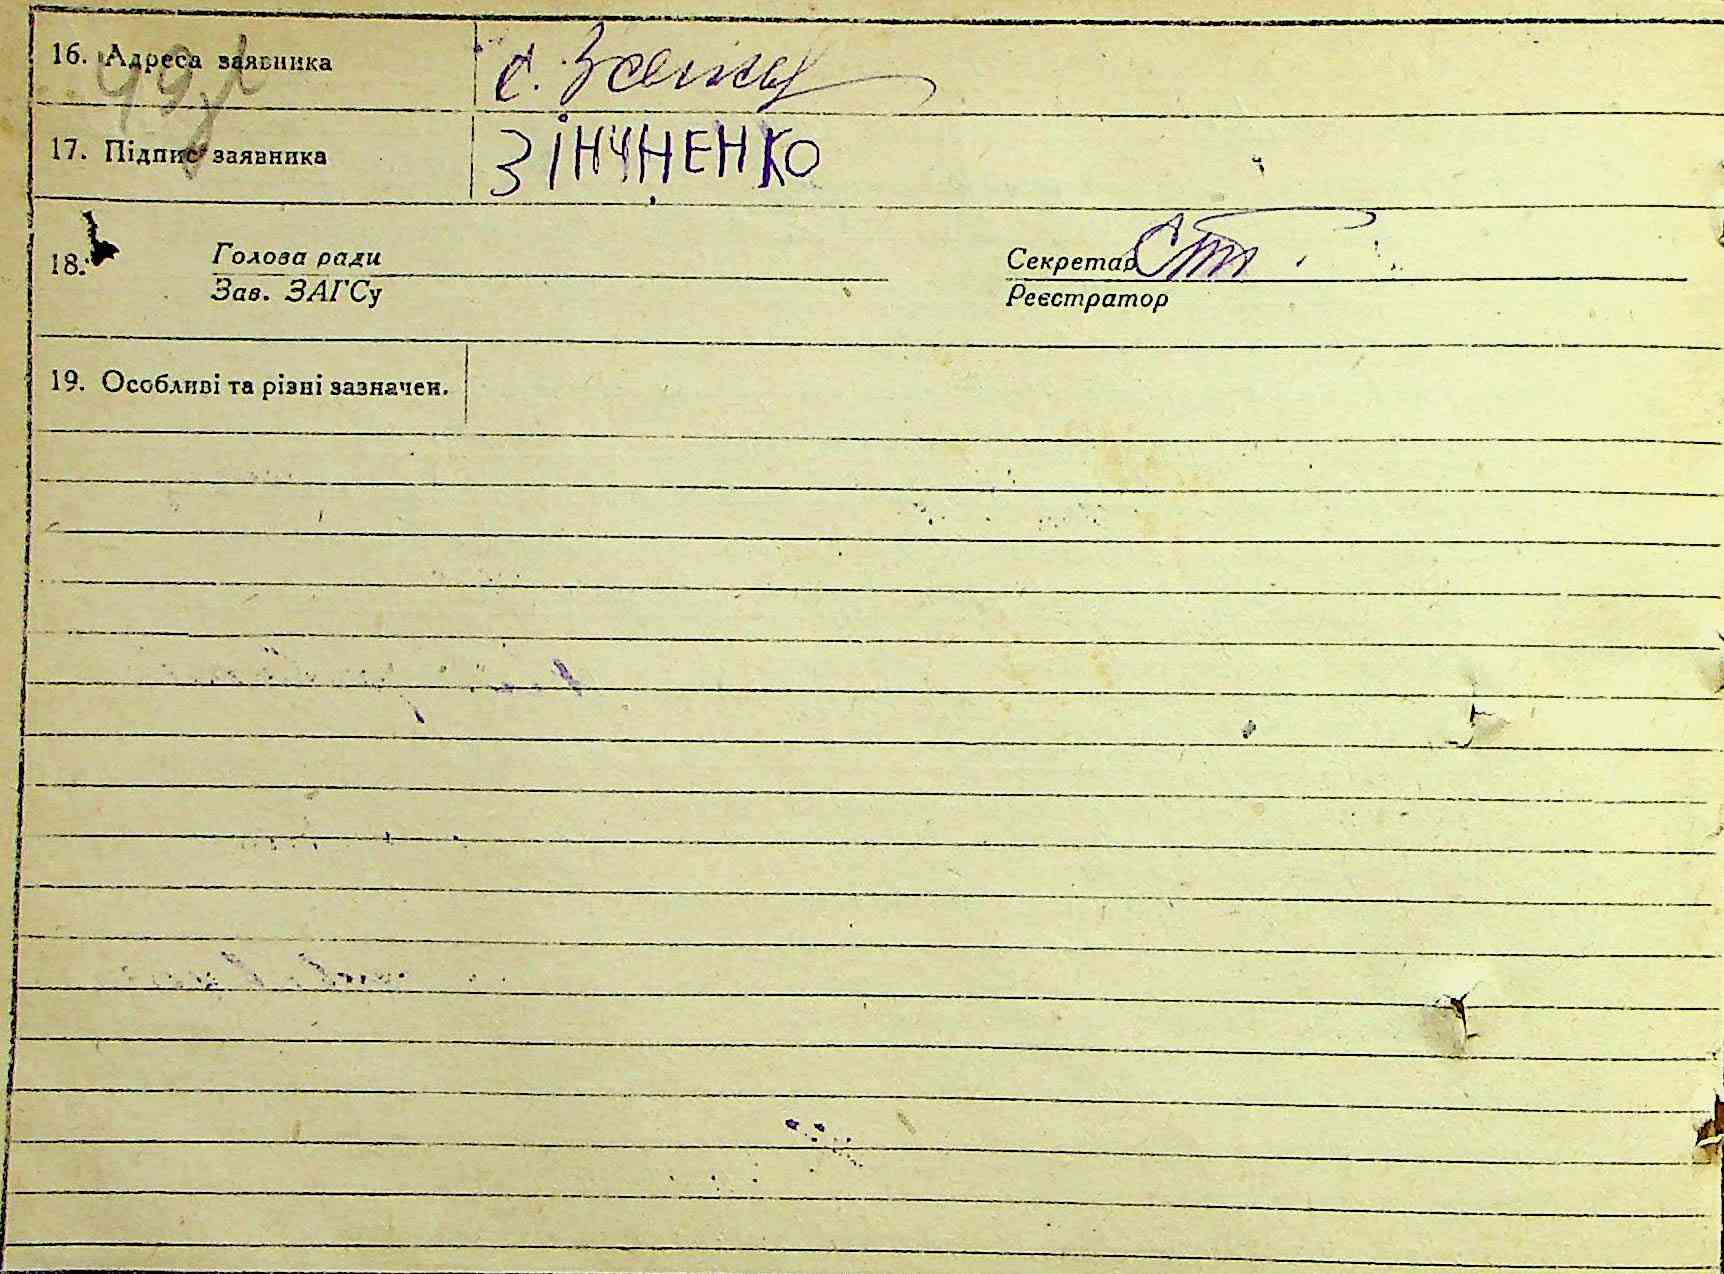 16. Адреса заявника с.
17. Підпис заявника ЗІНЧНЕНКО
18. Голова ради Секретар
Зав. ЗАГСу Реєстратор
19. Особливі та різні зазначен.